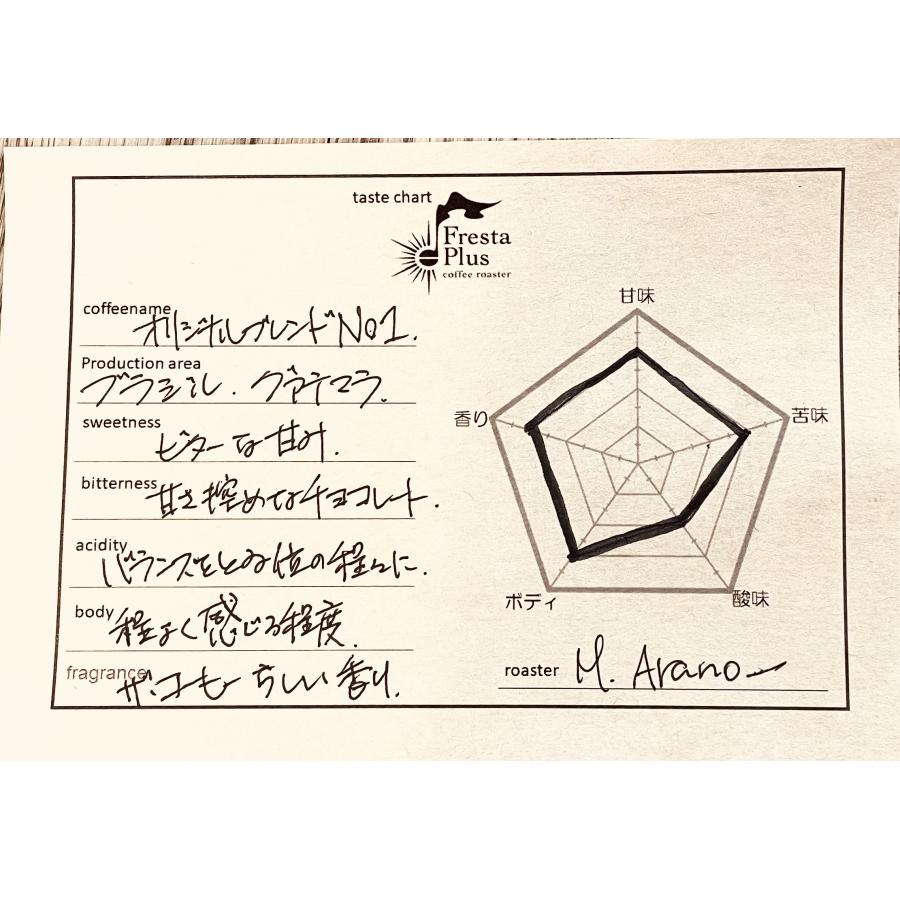 taste chart
Fresta
Plus
coffee roaster
coffeename
オリジナルブレンドNo1.
Production area
ブラジル. グァテマラ.
sweetness
ビターな甘み.
bitterness
甘さ控めなチョコレート.
acidity
バランスをとる位の程々に.
body
程よく感じる程度.
fragrance
ザ・コーヒーらしい香り.
甘味
香り
苦味
ボディ
酸味
roaster
M. Arano